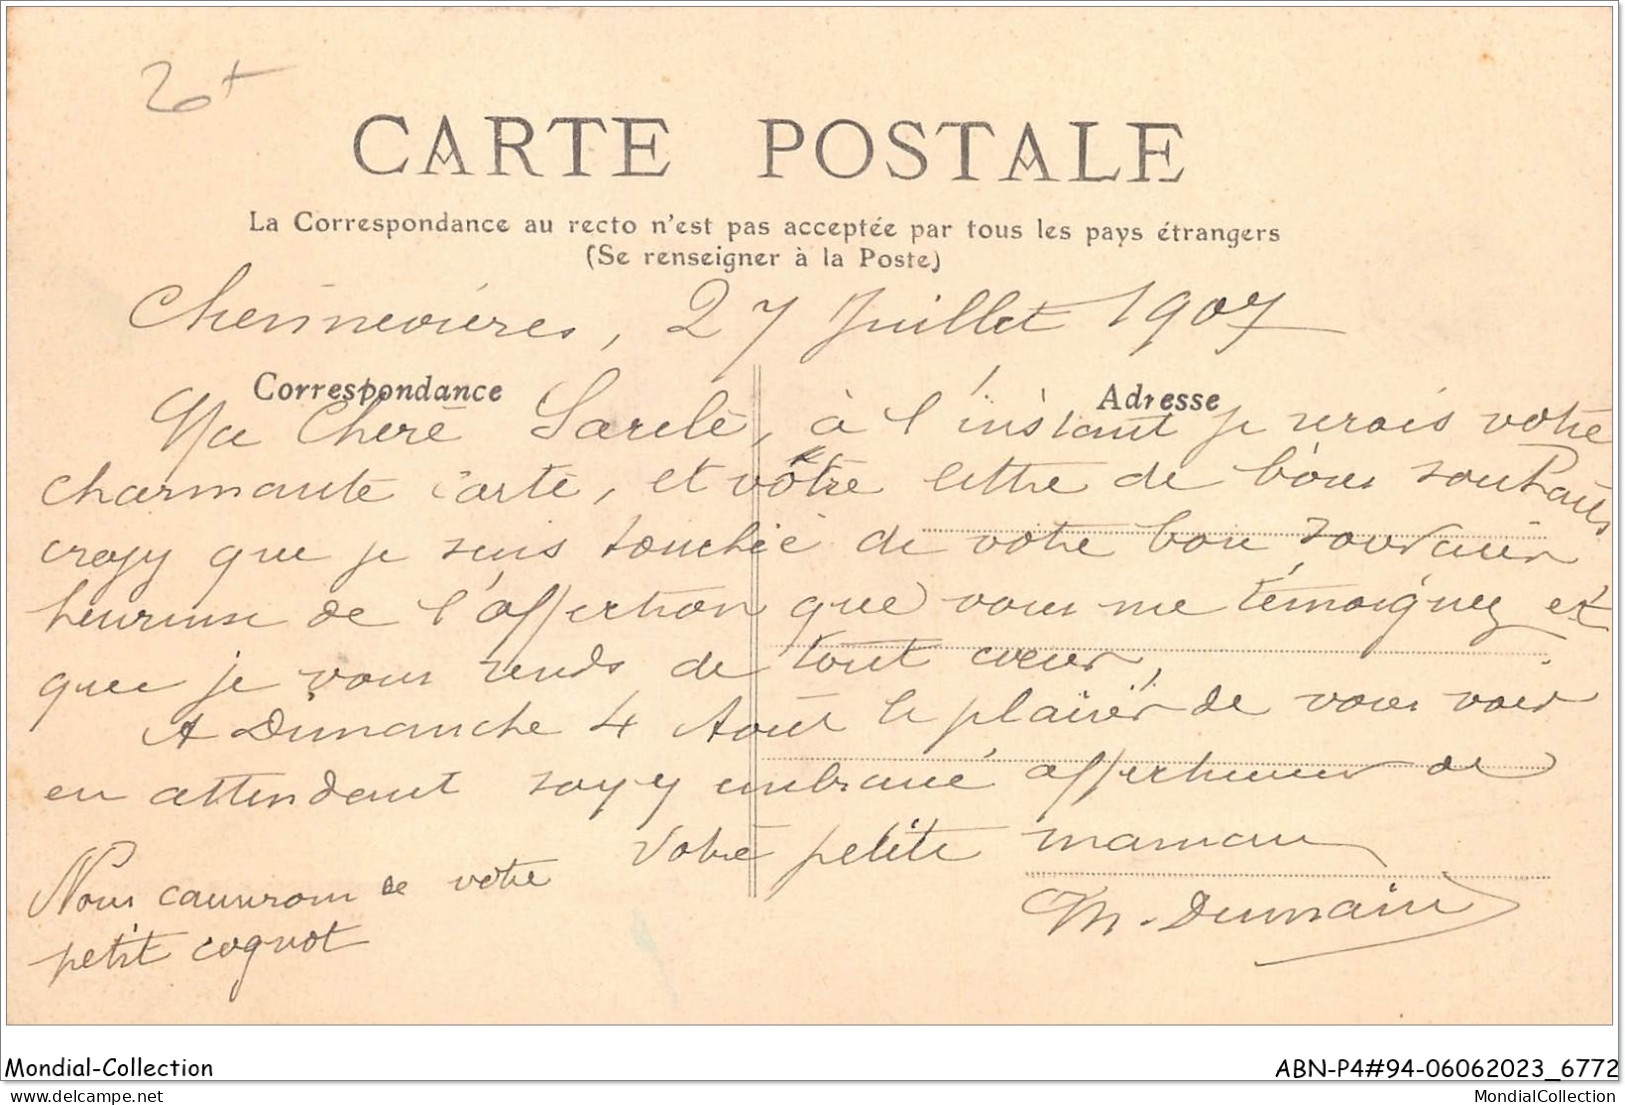 CARTE POSTALE
La Correspondance au recto n'est pas acceptée par tous les pays étrangers
(Se renseigner à la Poste)
Chennevières, 27 Juillet 1907
Correspondance
Adresse
Ma Chère à l'instant je votre
charmante carte, et vôtre lettre de bons souhaits
croyy que je suis touchée de votre bon souvenir
heureuse de l'affection que vous me témoignez et
que je vous rends de tout cœur,
A Dimanche 4 Aout le plaisir de vous voir
en attendant soyy embrassé affectueuse de
Votre petite maman
M. Dumain
Nous causerons de votre
petit
Mondial-Collection
ABN-P4#94-06062023_6772
delcampe.net
MondialCollection